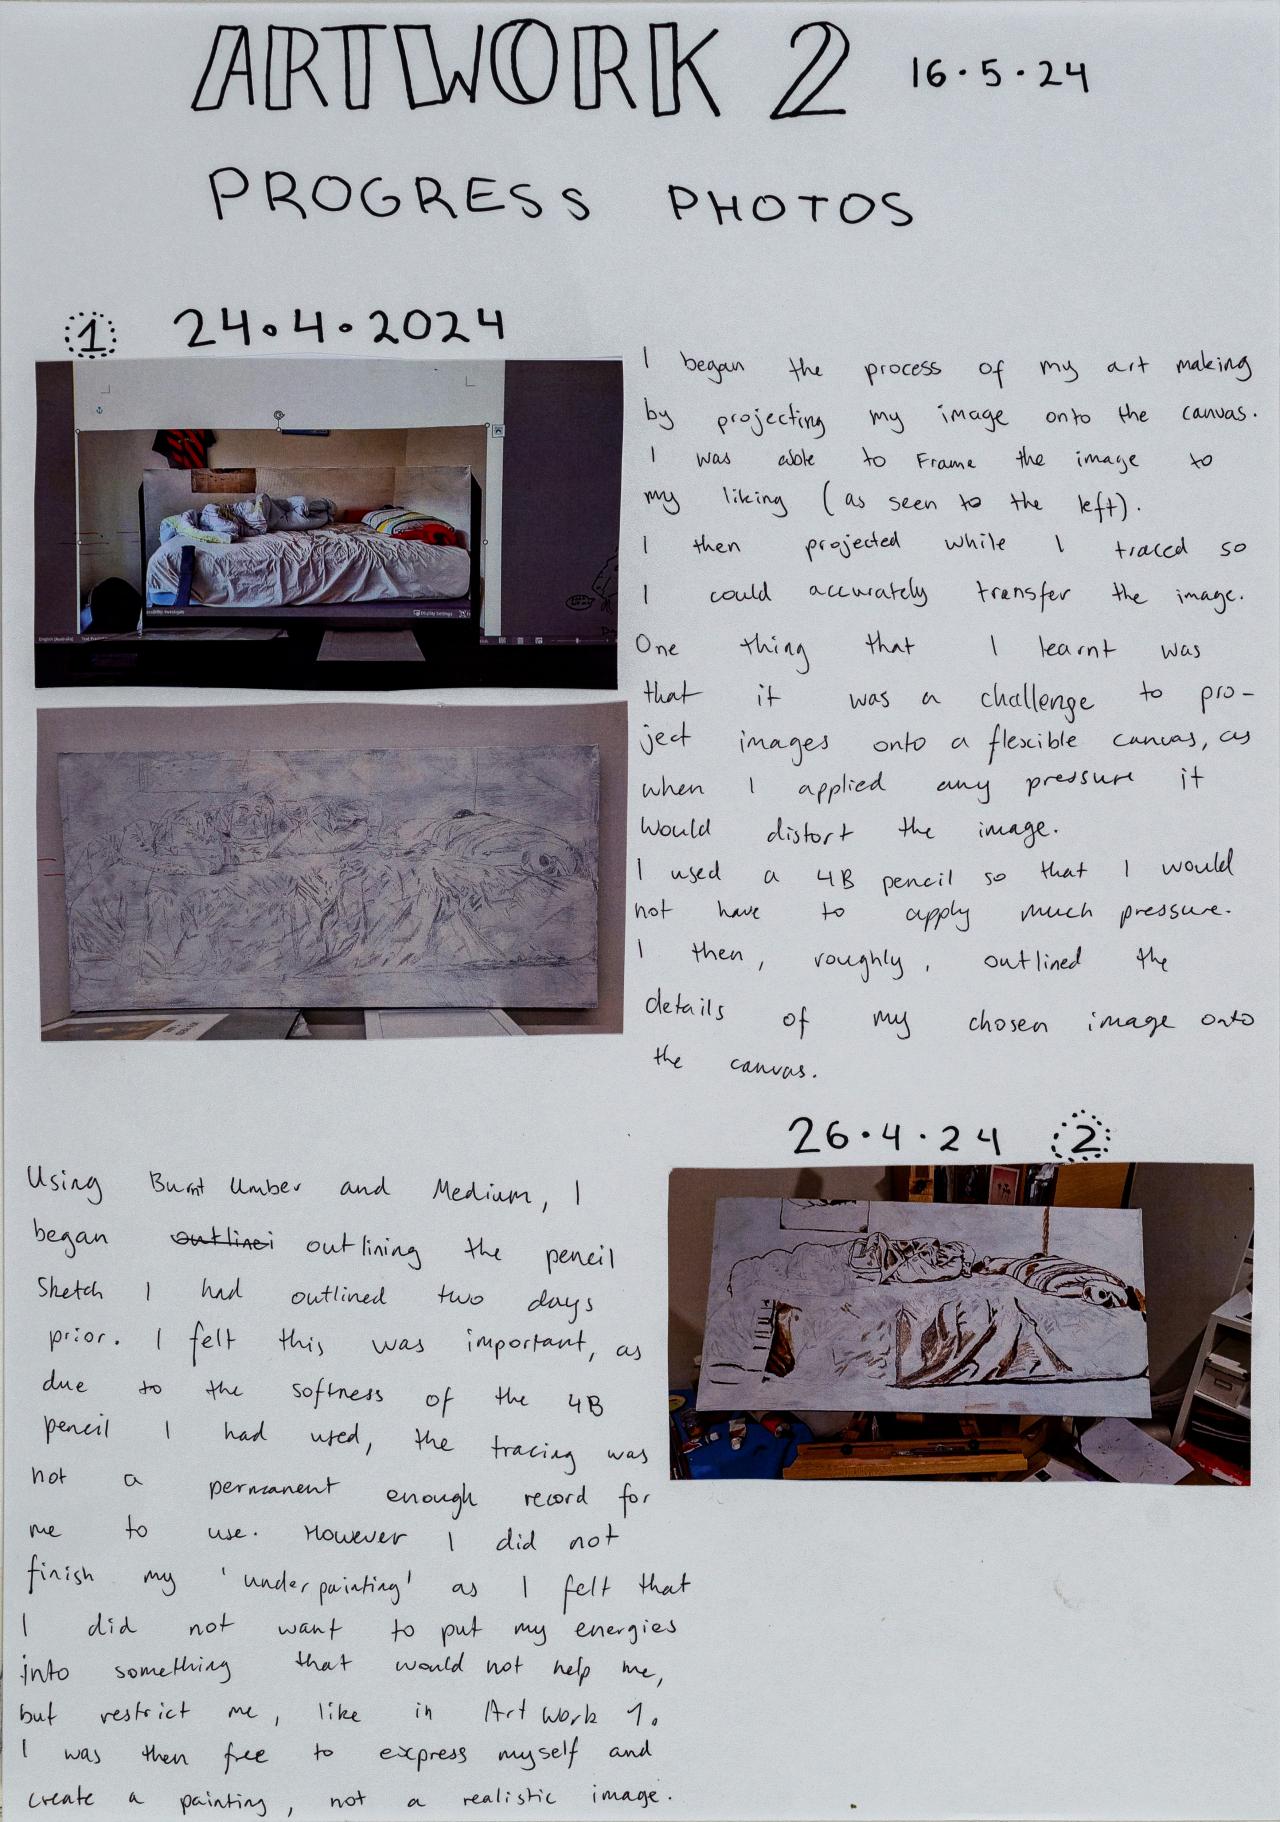 ARTWORK 2 16.5.24
PROGRESS PHOTOS
1 24.4.2024
I began the process of my art making
by projecting my image onto the canvas.
I was able to Frame the image to
my liking (as seen to the left).
I then projected while I traced so
I could accurately transfer the image.
One thing that I learnt was
that it was a challenge to pro-
ject images onto a flexible canvas, as
when I applied any pressure it
would distort the image.
I used a 4B pencil so that I would
not have to apply much pressure.
I then, roughly, outlined the
details of my chosen image onto
the canvas.
Display Settings
English (Australia)
26.4.24 2
Using Burnt Umber and Medium, I
began outlinei outlining the pencil
Sketch I had outlined two days
prior. I felt this was important, as
due to the softness of the 4B
pencil I had used, the tracing was
not a permanent enough record for
me to use. However I did not
finish my 'underpainting' as I felt that
I did not want to put my energies
into something that would not help me,
but restrict me, like in Art Work 1.
I was then free to express myself and
create a painting, not a realistic image.